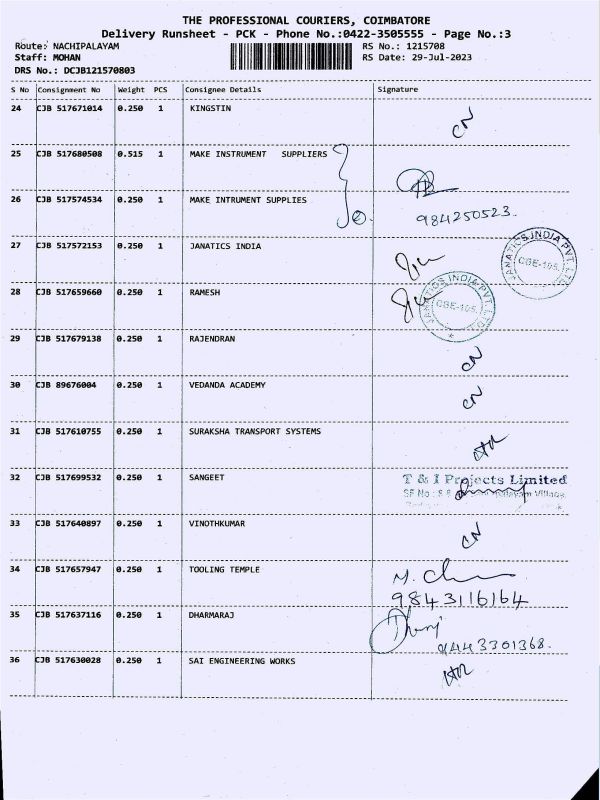 THE PROFESSIONAL COURIERS, COIMBATORE
Delivery Runsheet - PCK - Phone No.:0422-3505555 - Page No.:3
Route: NACHIPALAYAM RS No.: 1215708
Staff: MOHAN RS Date: 29-Jul-2023
DRS No.: DCJB121570803
S No Consignment No Weight PCS Consignee Details Signature
24 CJB 517671014 0.250 1 KINGSTIN CN
25 CJB 517680508 0.515 1 MAKE INSTRUMENT SUPPLIERS
26 CJB 517574534 0.250 1 MAKE INTRUMENT SUPPLIES 2 984250523.
27 CJB 517572153 0.250 1 JANATICS INDIA
JANATICS INDIA PVT. LTD. CBE-105.
28 CJB 517659660 0.250 1 RAMESH
JANATICS INDIA PVT. LTD. CBE-105.
29 CJB 517679138 0.250 1 RAJENDRAN CN
30 CJB 89676004 0.250 1 VEDANDA ACADEMY CN
31 CJB 517610755 0.250 1 SURAKSHA TRANSPORT SYSTEMS
32 CJB 517699532 0.250 1 SANGEET T & I Projects Limited
SF No : Village
33 CJB 517640897 0.250 1 VINOTHKUMAR CN
34 CJB 517657947 0.250 1 TOOLING TEMPLE
9843116164
35 CJB 517637116 0.250 1 DHARMARAJ
9443301368.
36 CJB 517630028 0.250 1 SAI ENGINEERING WORKS